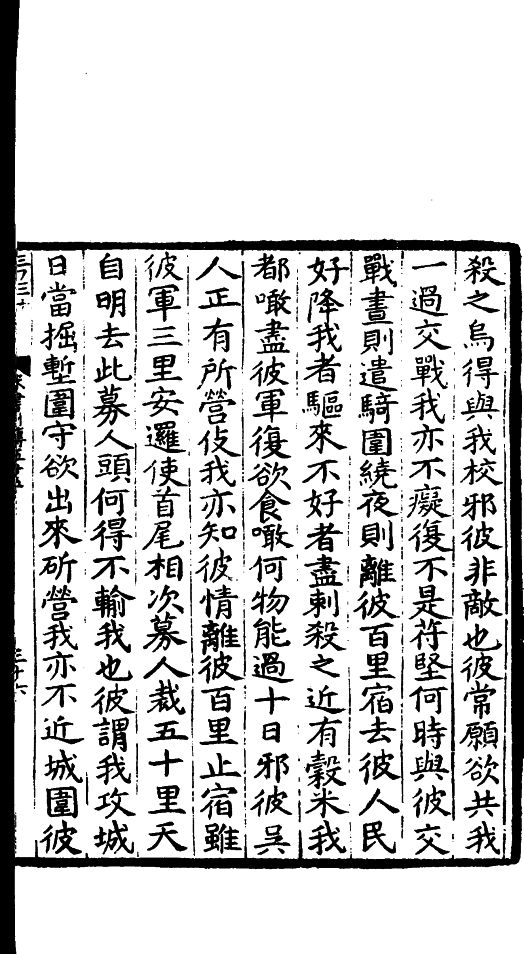 殺之烏得與我校邪彼非敵也彼常願欲共我
一過交戰我亦不癡復不是苻堅何時與彼交
戰晝則遣騎圍繞夜則離彼百里宿去彼人民
好降我者驅來不好者盡刺殺之近有糓米我
都噉盡彼軍復欲食噉何物能過十日邪彼吳
人正有所營伎我亦知彼情離彼百里止宿雖
彼軍三里安邏使首尾相次募人裁五十里天
自明去此募人頭何得不輸我也彼謂我攻城
日當掘塹圍守欲出來斫營我亦不近城圍彼